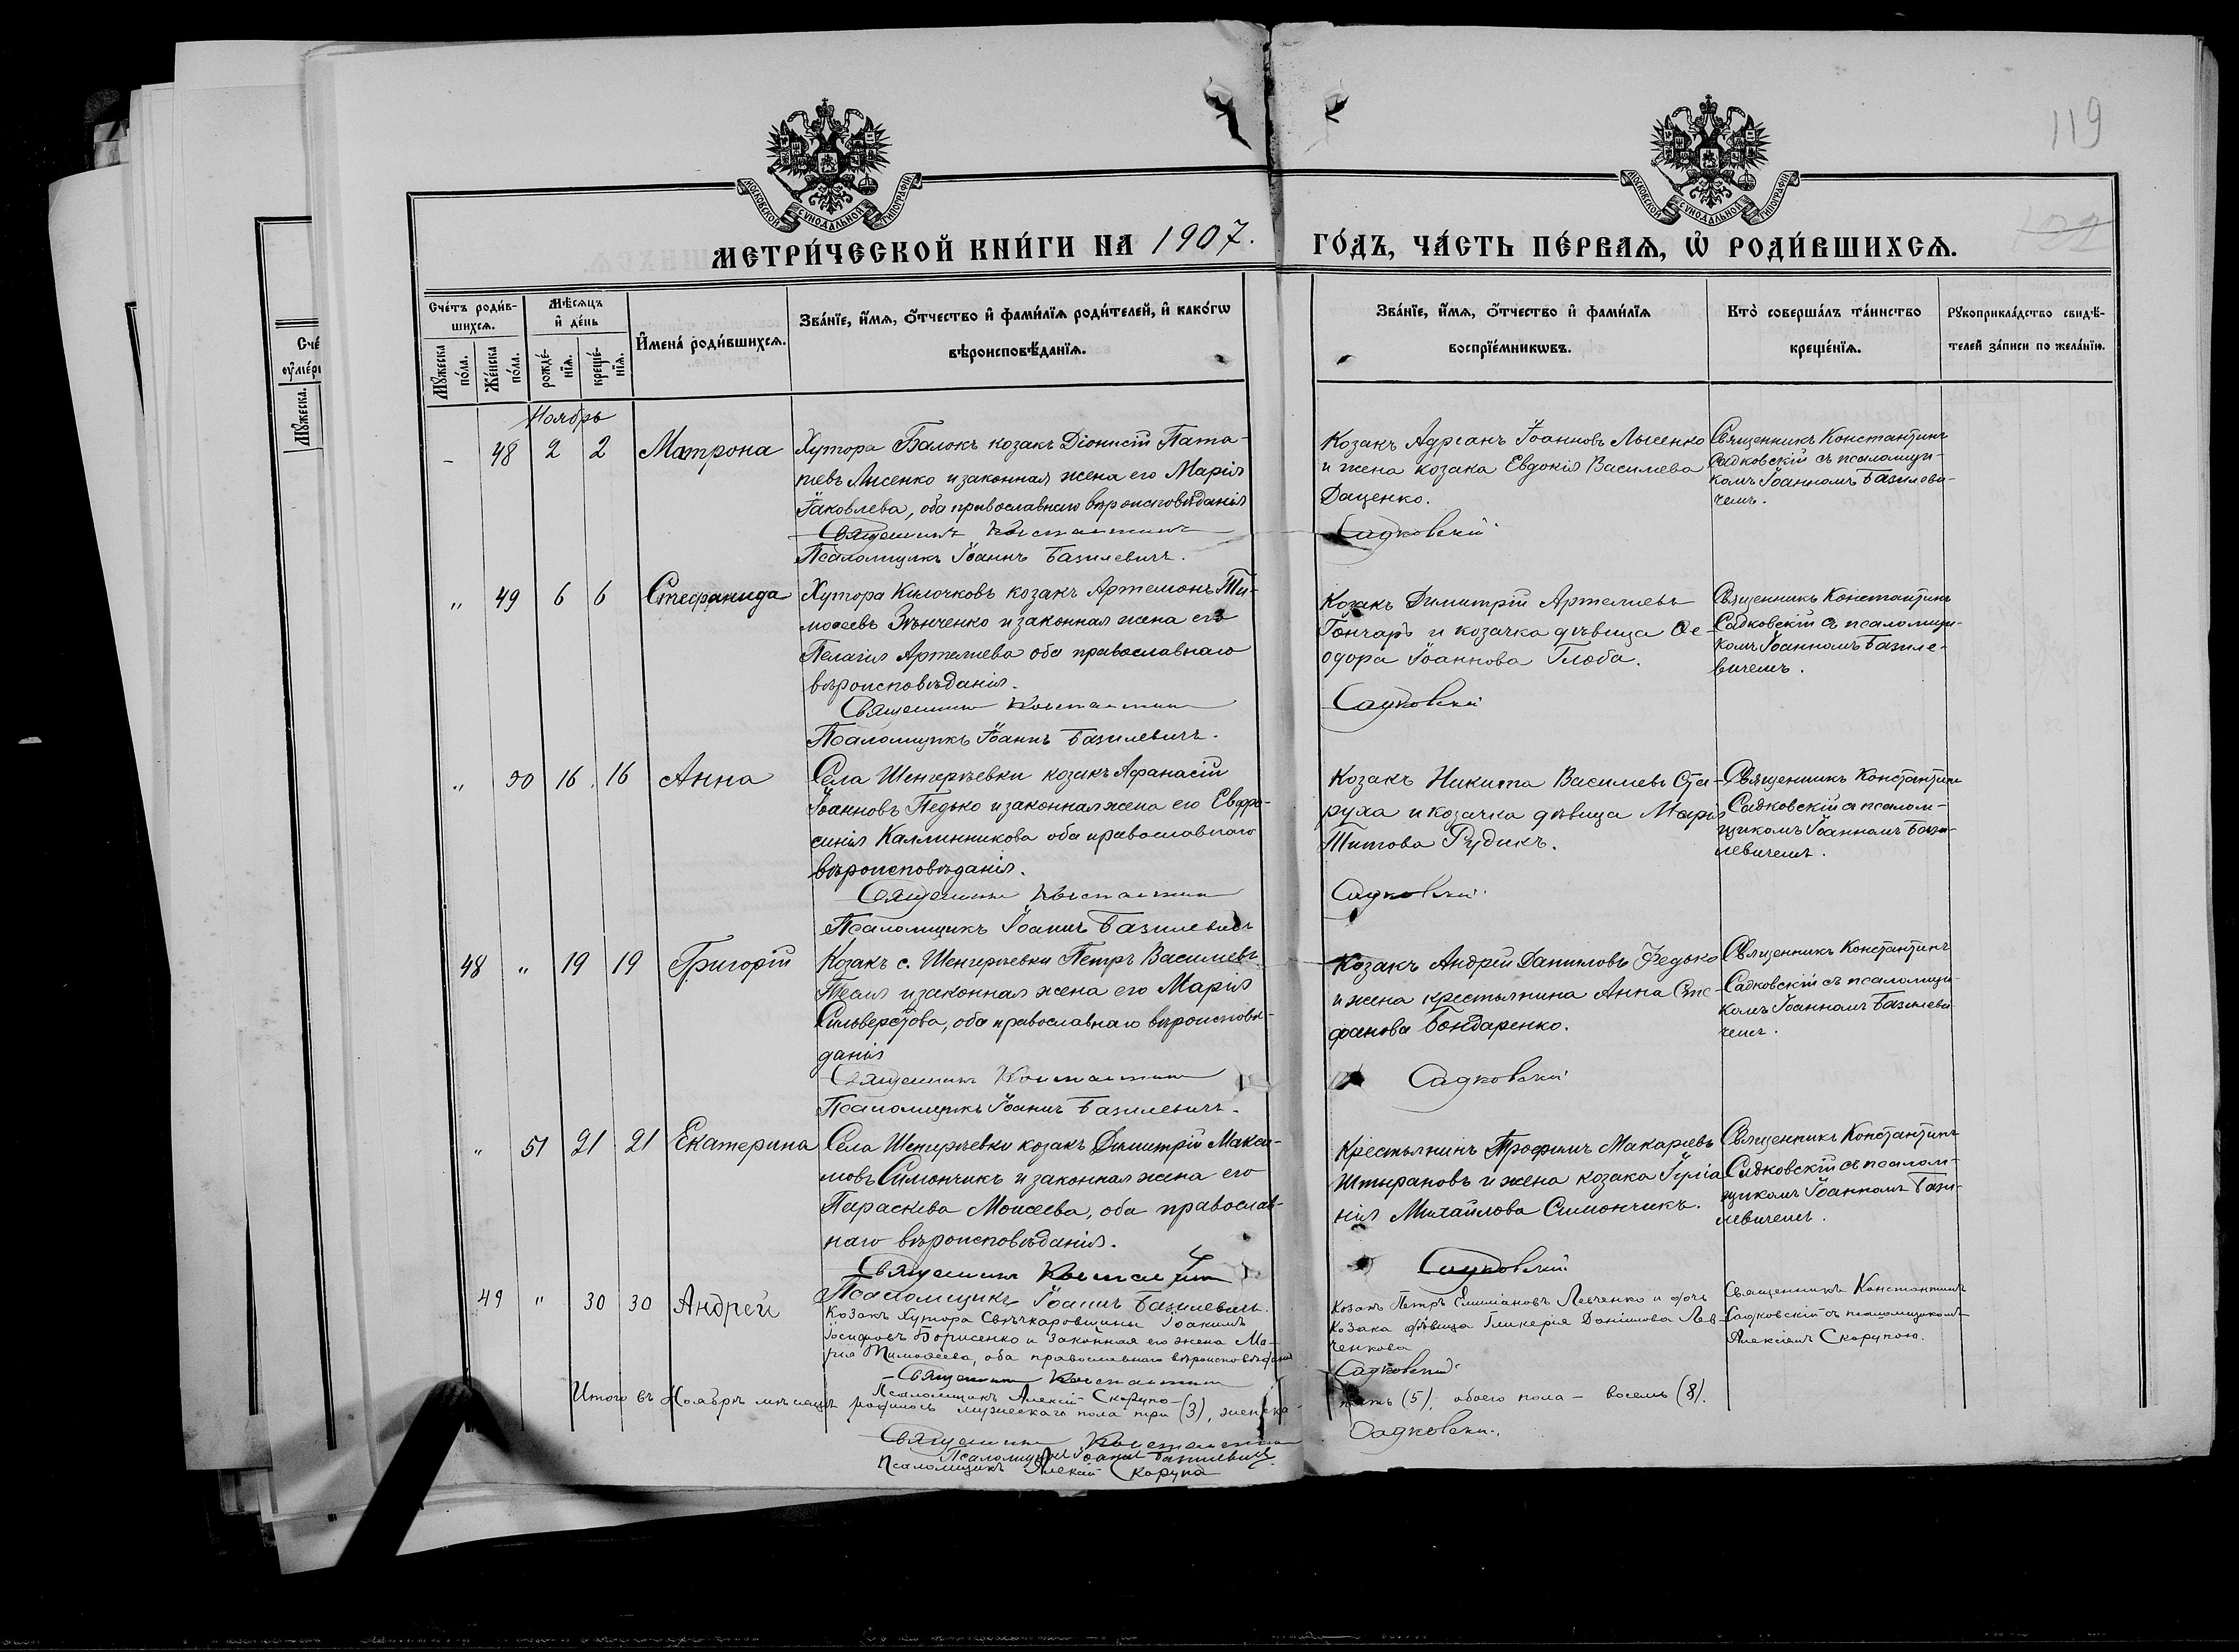 119
МОСКОВСКОЙ СУНОДАЛЬНОЙ ТИПОГРАФІИ
МОСКОВСКОЙ СУНОДАЛЬНОЙ ТИПОГРАФІИ
МЕТРИ́ЧЕСКОЙ КНИ́ГИ НА 1907.
ГО́ДЪ, ЧА́СТЬ ПЕ́РВАѦ, Ѡ РОДИ́ВШИХСѦ.
Сче́тъ роди́вшихсѧ.
Мꙋжеска по́ла.
Же́нска по́ла.
Мѣ́сѧцъ и҆ де́нь
рожде́нїѧ.
креще́нїѧ.
И҆мена́ роди́вшихсѧ.
Зва́нїе, и҆́мѧ, ѻ҆́тчество и҆ фами́лїѧ роди́телей, и҆ како́гѡ
вѣроисповѣ́данїѧ.
Зва́нїе, и҆́мѧ, ѻ҆́тчество и҆ фами́лїѧ
воспрїе́мникѡвъ.
Кто̀ соверша́лъ та́инство
креще́нїѧ.
Рꙋкоприкла́дство свидѣ́-
телей за́писи по жела́нїю.
Ноябрь
- 48 2 2 Матрона
Хутора Балокъ козакъ Діонисій Пата-
піевъ Лысенко и законная жена его Марія
Іаковлева, оба православнаго вѣроисповѣданія
Священникъ Константинъ
Псаломщикъ Іоаннъ Базилевичъ.
Козакъ Адріанъ Іоанновъ Лысенко
и жена козака Евдокія Василева
Даценко.
Садковскій
Священникъ Константинъ
Садковскій съ псаломщи-
комъ Іоанномъ Базилеви-
чемъ.
" 49 6 6 Стефанида
Хутора Килочковъ козакъ Артемонъ Ти-
моѳеевъ Зѣнченко и законная жена его
Пелагія Артемиева оба православнаго
вѣроисповѣданія.
Священникъ Константинъ
Псаломщикъ Іоаннъ Базилевичъ.
Козакъ Димитрій Артемиевъ
Гончаръ и козачка дѣвица Ѳе-
одора Іоаннова Глоба.
Садковскій
Священникъ Константинъ
Садковскій съ псаломщи-
комъ Іоанномъ Базиле-
вичемъ.
" 50 16 16 Анна
Села Шенгерѣевки козакъ Афанасій
Іоанновъ Педько и законная жена его Евфро-
синія Каллинникова оба православнаго
вѣроисповѣданія.
Священникъ Константинъ
Псаломщикъ Іоаннъ Базилевичъ
Козакъ Никита Василевъ Ста-
руха и козачка дѣвица Марія
Титова Рудикъ.
Садковскій
Священникъ Константинъ
Садковскій съ псалом-
щикомъ Іоанномъ Бази-
левичемъ.
48 " 19 19 Григорій
Козакъ с. Шенгерѣевки Петръ Василевъ
и законная жена его Марія
Сильверстова, оба православнаго вѣроисповѣ-
данія
Священникъ Константинъ
Псаломщикъ Іоаннъ Базилевичъ.
Козакъ Андрей Даниловъ Федько
и жена крестьянина Анна Сте-
фанова Бондаренко.
Садковскій
Священникъ Константинъ
Садковскій съ псаломщи-
комъ Іоанномъ Базилеви-
чемъ.
" 51 21 21 Екатерина
Села Шенгерѣевки козакъ Димитрій Макси-
мовъ Симончикъ и законная жена его
Параскева Моисеева, оба православ-
наго вѣроисповѣданія.
Священникъ Константинъ
Псаломщикъ Іоаннъ Базилевичъ.
Крестьянинъ Трофимъ Макаріевъ
Штырановъ и жена козака Іуліа-
нія Михайлова Симончикъ.
Садковскій
Священникъ Константинъ
Садковскій съ псалом-
щикомъ Іоанномъ Бази-
левичемъ.
49 " 30 30 Андрей
Козакъ Хутора Свѣчкаровщины Іоакимъ
Іосифовъ Борисенко и законная его жена Ма-
рія Тимоѳеева, оба православнаго вѣроисповѣданія
Священникъ Константинъ
Псаломщикъ Алексій Скорупо
Козакъ Петръ Емиліановъ Левченко и дочь
козака дѣвица Гликерія Даніилова Лев-
ченкова
Садковскій
Священникъ Константинъ
Садковскій съ псаломщикомъ
Алексіемъ Скорупою.
Итого въ Ноябрѣ мѣсяцѣ родилось мужескаго пола три (3), женска-
пять (5), обоего пола - восемь (8).
Священникъ Константинъ
Садковскій
Псаломщикъ Іоаннъ Базилевичъ
Псаломщикъ Алексій Скорупа